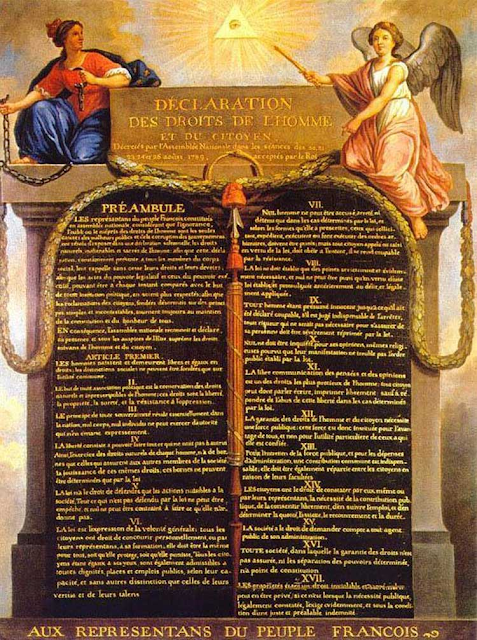 DÉCLARATION
DES DROITS DE L'HOMME
ET DU CITOYEN,
Décrétés par l'Assemblée Nationale dans les séances des 20, 21
23, 24 et 26 août 1789, acceptés par le Roi
PRÉAMBULE
LES représentans du peuple Francois constitués
en assemblée nationale, considérant que l'ignorance,
l'oubli ou le mépris des droits de l'homme sont les seules
causes des malheurs publics et de la corruption des gouvernemens
ont résolu d'exposer dans une déclaration solemnelle, les droits
naturels, inaliénables et sacrés de l'homme: afin que cette décla-
ration, constamment présente à tous les membres du corps
social, leur rappelle sans cesse leurs droits et leurs devoirs;
afin que les actes du pouvoir législatif et ceux du pouvoir exé-
cutif, pouvant être à chaque instant comparés avec le but
de toute institution politique, en soient plus respectés; afin que
les réclamations des citoyens, fondées désormais sur des princi-
pes simples et incontestables, tournent toujours au maintien
de la constitution et du bonheur de tous.
EN conséquence, l'assemblée nationale reconnoit et déclare,
en présence et sous les auspices de l'Etre suprême les droits
suivans de l'homme et du citoyen.
ARTICLE PREMIER.
LES hommes naissent et demeurent libres et égaux en
droits, les distinctions sociales ne peuvent être fondées que sur
l'utilité commune.
II.
LE but de toute association politique est la conservation des droits
naturels et imprescriptibles de l'homme; ces droits sont la liberté,
la propriété, la sureté, et la résistance à l'oppression.
III.
LE principe de toute souveraineté réside essentiellement dans
la nation, nul corps, nul individu ne peut exercer d'autorité
qui n'en émane expressement.
IV.
LA liberté consiste à pouvoir faire tout ce qui ne nuit pas à autrui
Ainsi, l'exercice des droits naturels de chaque homme, n'a de bor-
nes que celles qui assurent aux autres membres de la société
la jouissance de ces mêmes droits; ces bornes ne peuvent
être déterminées que par la loi
V.
LA loi n'a le droit de défendre que les actions nuisibles à la
société. Tout ce qui n'est pas défendu par la loi ne peut être
empêché, et nul ne peut être contraint à faire ce qu'elle n'or-
donne pas.
VI.
LA loi est l'expression de la volonté générale; tous les
citoyens ont droit de concourir personnellement, ou par
leurs représentans, à sa formation; elle doit être la même
pour tous, soit qu'elle protege, soit qu'elle punisse, Tous les cito-
yens étant égaux à ses yeux, sont également admissibles à
toutes dignités, places et emplois publics, selon leur ca-
pacité, et sans autres distinction que celles de leurs
vertus et de leurs talens
VII.
NUL homme ne peut être accusé, arrêté, ni
détenu que dans les cas déterminés par la loi, et
selon les formes qu'elle a prescrites, ceux qui sollici-
tent, expédient, exécutent ou font exécuter des ordres ar-
bitraires, doivent être punis; mais tout citoyen appelé ou saisi
en vertu de la loi, doit obéir à l'instant, il se rend coupable
par la résistance.
VIII.
LA loi ne doit établir que des peines strictement et évidem-
ment nécessaires, et nul ne peut être puni qu'en vertu d'une
loi établie et promulguée antérieurement au délit, et légale-
ment appliquée.
IX.
TOUT homme étant présumé innocent jusqu'à ce qu'il ait
été déclaré coupable, s'il est jugé indispensable de l'arrêter,
toute rigueur qui ne serait pas nécessaire pour s'assurer de
sa personne doit être sévèrement réprimée par la loi.
X.
NUL ne doit être inquiété pour ses opinions, mêmes religi-
euses pourvu que leur manifestation ne trouble pas l'ordre
public établi par la loi.
XI.
LA libre communication des pensées et des opinions
est un des droits les plus précieux de l'homme; tout citoyen
peut donc parler, écrire, imprimer librement: sauf à ré-
pondre de l'abus de cette liberté dans les cas déterminés
par la loi.
XII.
LA garantie des droits de l'homme et du citoyen nécessite
une force publique; cette force est donc instituée pour l'avan-
tage de tous, et non pour l'utilité particuliere de ceux a qui
elle est confiée.
XIII.
POUR l'entretien de la force publique, et pour les dépenses
d'administration, une contribution commune est indispen-
sable; elle doit être également répartie entre les citoyens en
raison de leurs facultées
XIV.
LES citoyens ont le droit de constater par eux même ou
par leurs représentans, la nécessité de la contribution pub-
lique, de la consentir librement, d'en suivre l'emploi, et d'en
déterminer la quotité, l'assiette, le recouvrement et la durée.
XV.
LA société a le droit de demander compte a tout agent
public de son administration.
XVI.
TOUTE société, dans laquelle la garantie des droits n'est
pas assurée, ni la séparation des pouvoirs déterminée,
n'a point de constitution
XVII.
LES propriétés étant un droit inviolable et sacré, nul ne
peut en être privé, si ce n'est lorsque la nécessité publique,
légalement constatée, l'exige évidemment, et sous la condi-
tion d'une juste et préalable indemnité.
AUX REPRESENTANS DU PEUPLE FRANCOIS